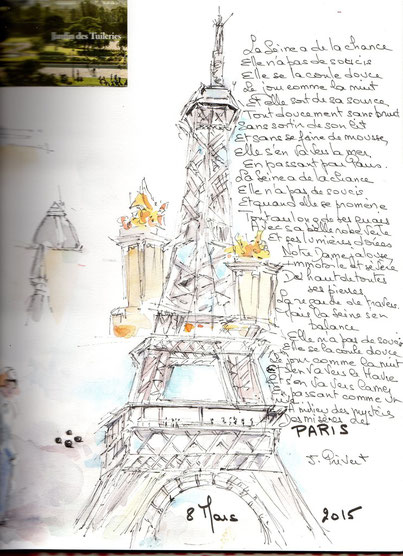 Jardin des Tuileries
La Seine a de la chance
Elle n'a pas de soucis
Elle se la coule douce
Le jour comme la nuit
Et elle sort de sa source,
Tout doucement sans bruit
Sans sortir de son lit
Et sans se faire de mousse,
Elle s'en va vers la mer,
En passant par Paris.
La Seine a de la chance
Elle n'a pas de soucis
Et quand elle se promène
Tout au long de ses quais
Avec sa belle robe verte
Et ses lumières dorées
Notre Dame jalouse,
immobile et sévère
Du haut de toutes
ses pierres
La regarde de travers
Mais la Seine s'en
balance
Elle n'a pas de soucis
Elle se la coule douce
Le jour comme la nuit
Et s'en va vers le Havre
Et s'en va vers la mer
En passant comme un
Au milieu des mystères
Des misères de
PARIS
J. Prévert
8 Mars 2015